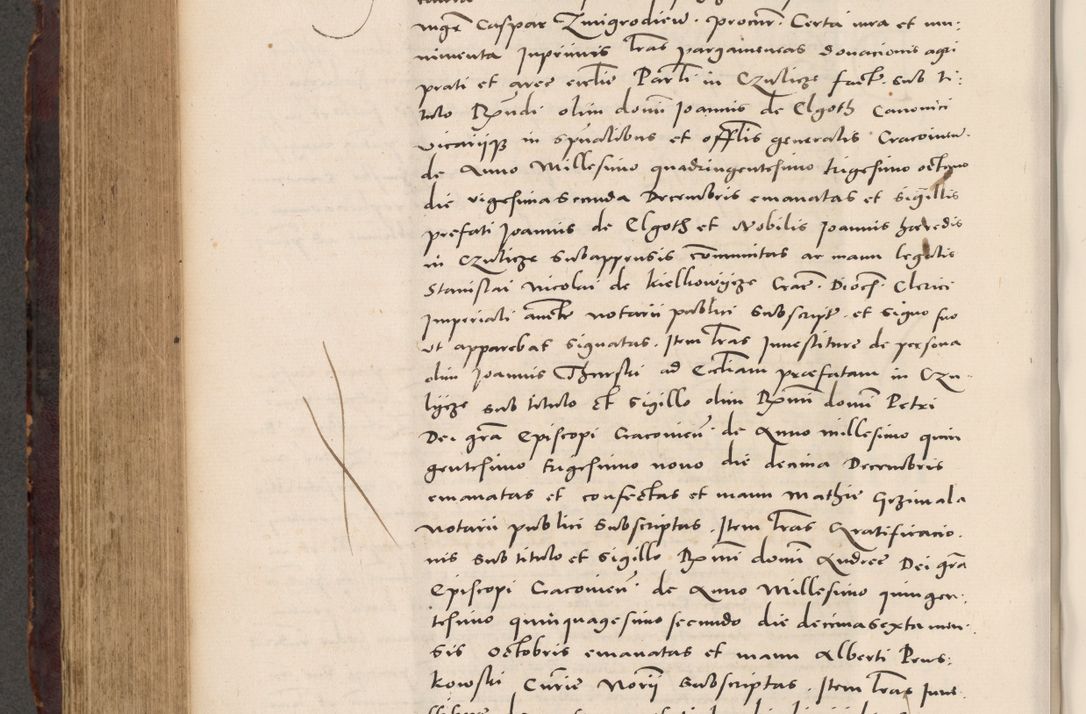 mgr̃ Caspar Zmigrodien̄ . procur̃ . Certa iura et mu-
nimenta Inprimis l̃ras pargameneas donacionis agri
prati et aree eccl̃ie Par̃li in Czulicze fact̃ . sub ti-
tulo Rñdi olim domi Joannis de Elgoth Canonici
vicariiq̃ in sp̃ualibus et offl̃is generalis Cracovien̄ .
de Anno Millesimo quadringentesimo trigesimo octavo
die vigesima secunda Decembris emanatas et sigillis
prefati Joannis de Elgoth et Nobilis Joannis hæredis
in Czulicze subappensis communitas ac manu legalis
Stanislai Nicolai de Kielkowycze Crac̃ . Dioc̃ . Clerici
Imperiali auct̃e notarii publici subscript̃ . et signo suo
ut apparebat signatas . Item l̃ras Investiture de persona
olim Joannis Thurski ad Eccl̃iam præfatam in Czu-
lycze sub titulo et sigillo olim Rx̃mi domi Petri
Dei gr̃a Episcopi Cracovien̄ . de Anno millesimo quin
gentesimo trigesimo nono die decima Decembris
emanatas et confectas et manu Mathie Grzimala
Notarii publici subscriptas . Item l̃ras Gratificacio-
nis sub titulo et sigillo Rx̃mi domi Andree Dei gr̃a
Episcopi Cracovien̄ . de Anno Millesimo quingen-
tesimo quinquagesimo secundo die decima sexta men-
sis Octobris emanatas et manu Alberti Prus-
kowski Curie Norii subscriptas . Item l̃ras Inve-